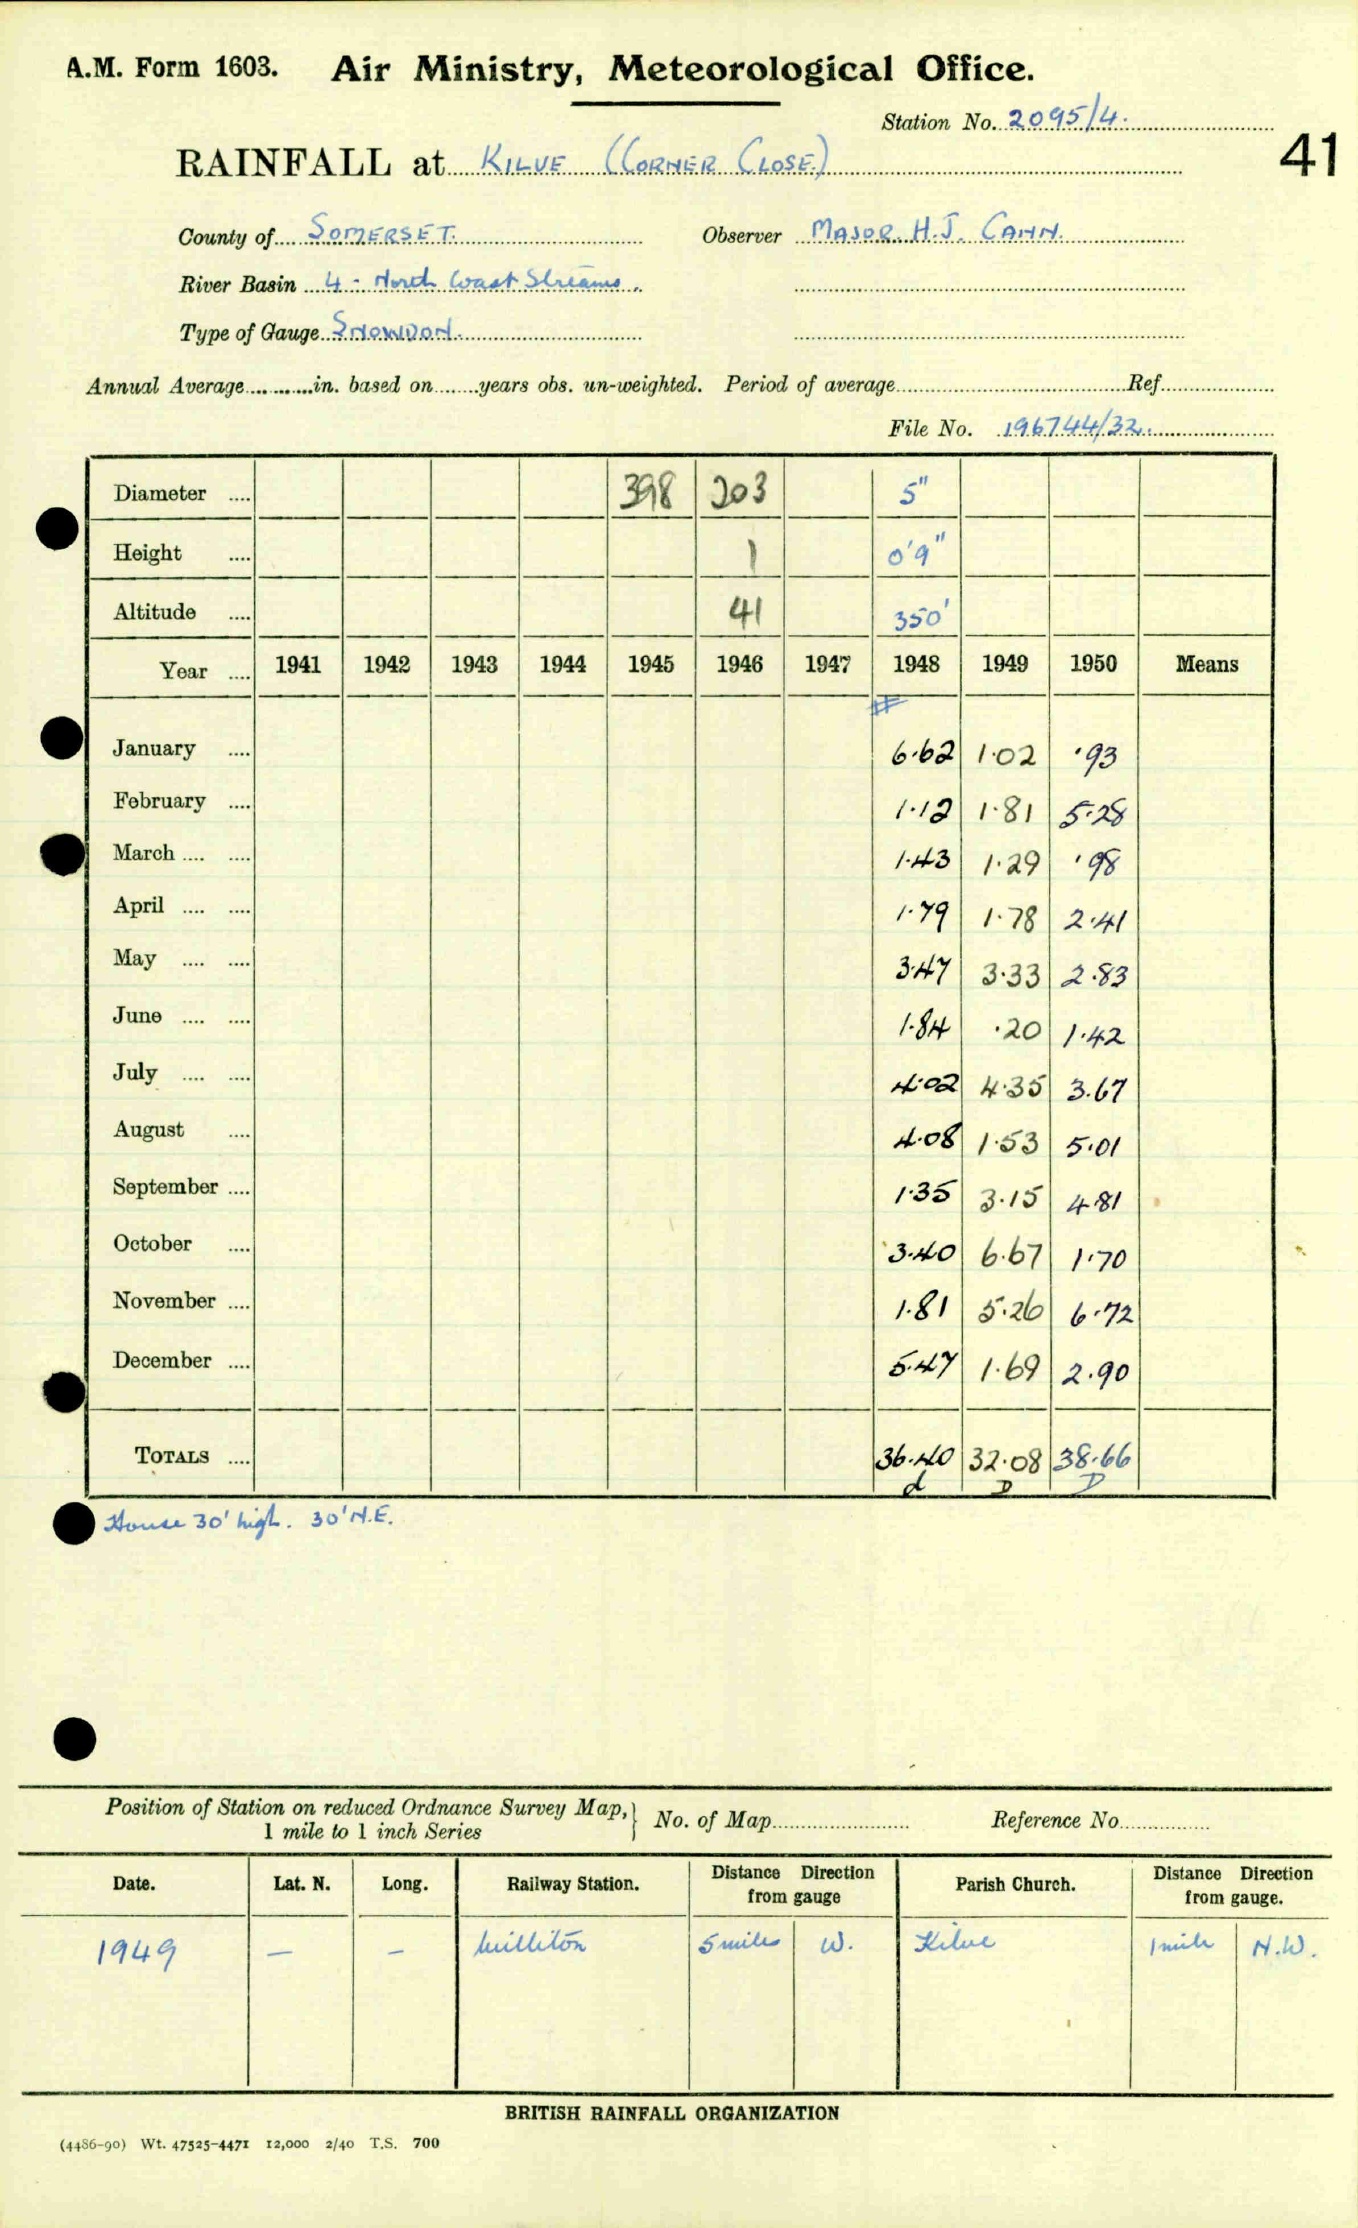 A.M. Form 1603. Air Ministry, Meteorological Office.
Station No. 2095/4.
41
RAINFALL at KILVE (CORNER CLOSE.)
County of SOMERSET. Observer MAJOR. H.J. CANN.
River Basin 4 - North Coast Streams.
Type of Gauge SNOWDON.
Annual Average in. based on years obs. un-weighted. Period of average Ref.
File No. 196744/32.
Diameter 398 203 5"
Height 1 0'9"
Altitude 41 350'
Year 1941 1942 1943 1944 1945 1946 1947 1948 1949 1950 Means
#
January 6.62 1.02 .93
February 1.12 1.81 5.28
March 1.43 1.29 .98
April 1.79 1.78 2.41
May 3.47 3.33 2.83
June 1.84 .20 1.42
July 4.02 4.35 3.67
August 4.08 1.53 5.01
September 1.35 3.15 4.81
October 3.40 6.67 1.70
November 1.81 5.26 6.72
December 5.47 1.69 2.90
TOTALS 36.40 32.08 38.66
d D D
House 30' high. 30' N.E.
Position of Station on reduced Ordnance Survey Map, 1 mile to 1 inch Series } No. of Map Reference No.
Date. Lat. N. Long. Railway Station. Distance Direction from gauge Parish Church. Distance Direction from gauge.
1949 — — Williton 5 miles W. Kilve 1 mile N.W.
BRITISH RAINFALL ORGANIZATION
(4486-90) Wt. 47525-4471 12,000 2/40 T.S. 700